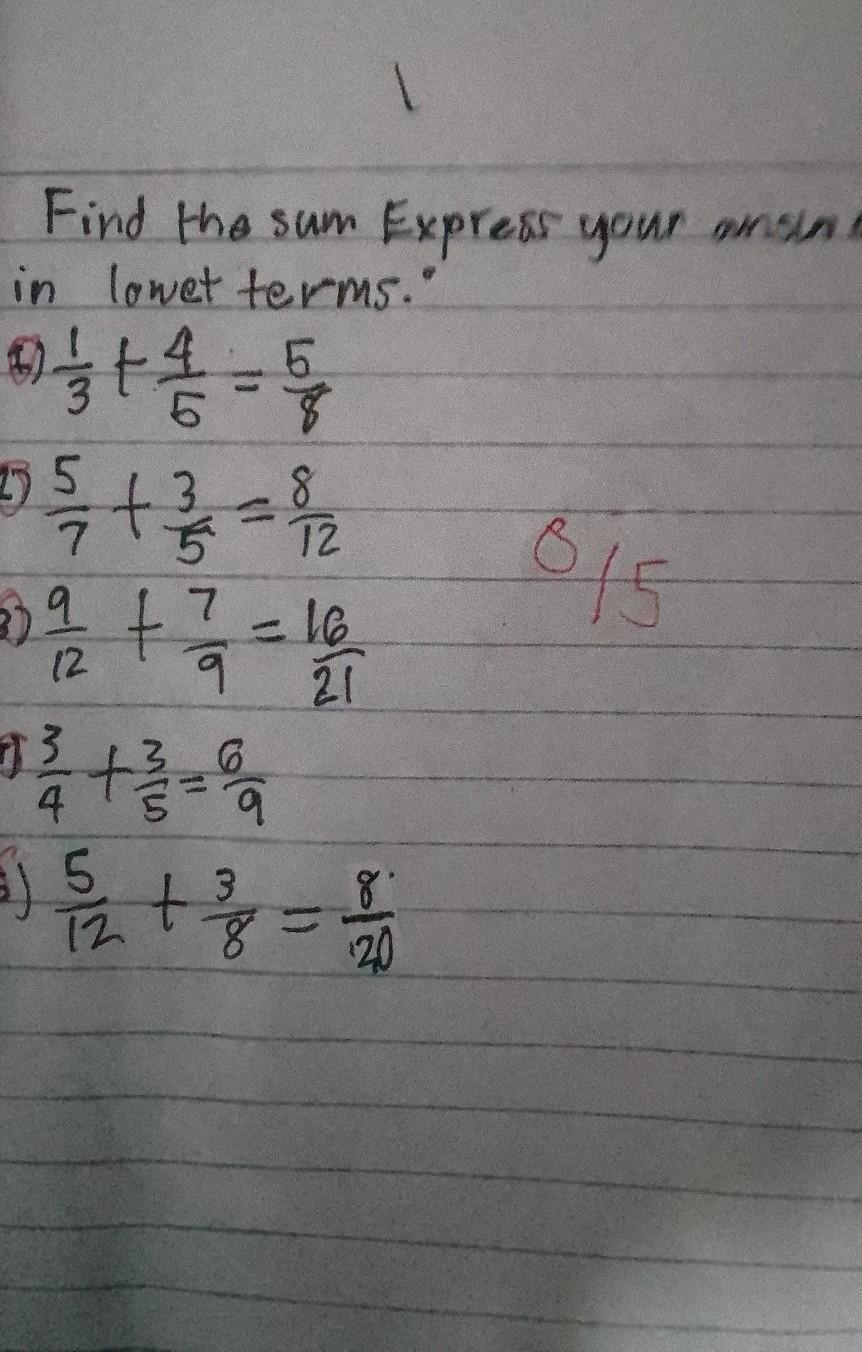 \
Find the sum Express your
in lowet terms.
1) 1/3 + 4/5 = 5/8
2) 5/7 + 3/5 = 8/12
3) 9/12 + 7/9 = 16/21
3/4 + 3/5 = 6/9
) 5/12 + 3/8 = 8/20
0/5